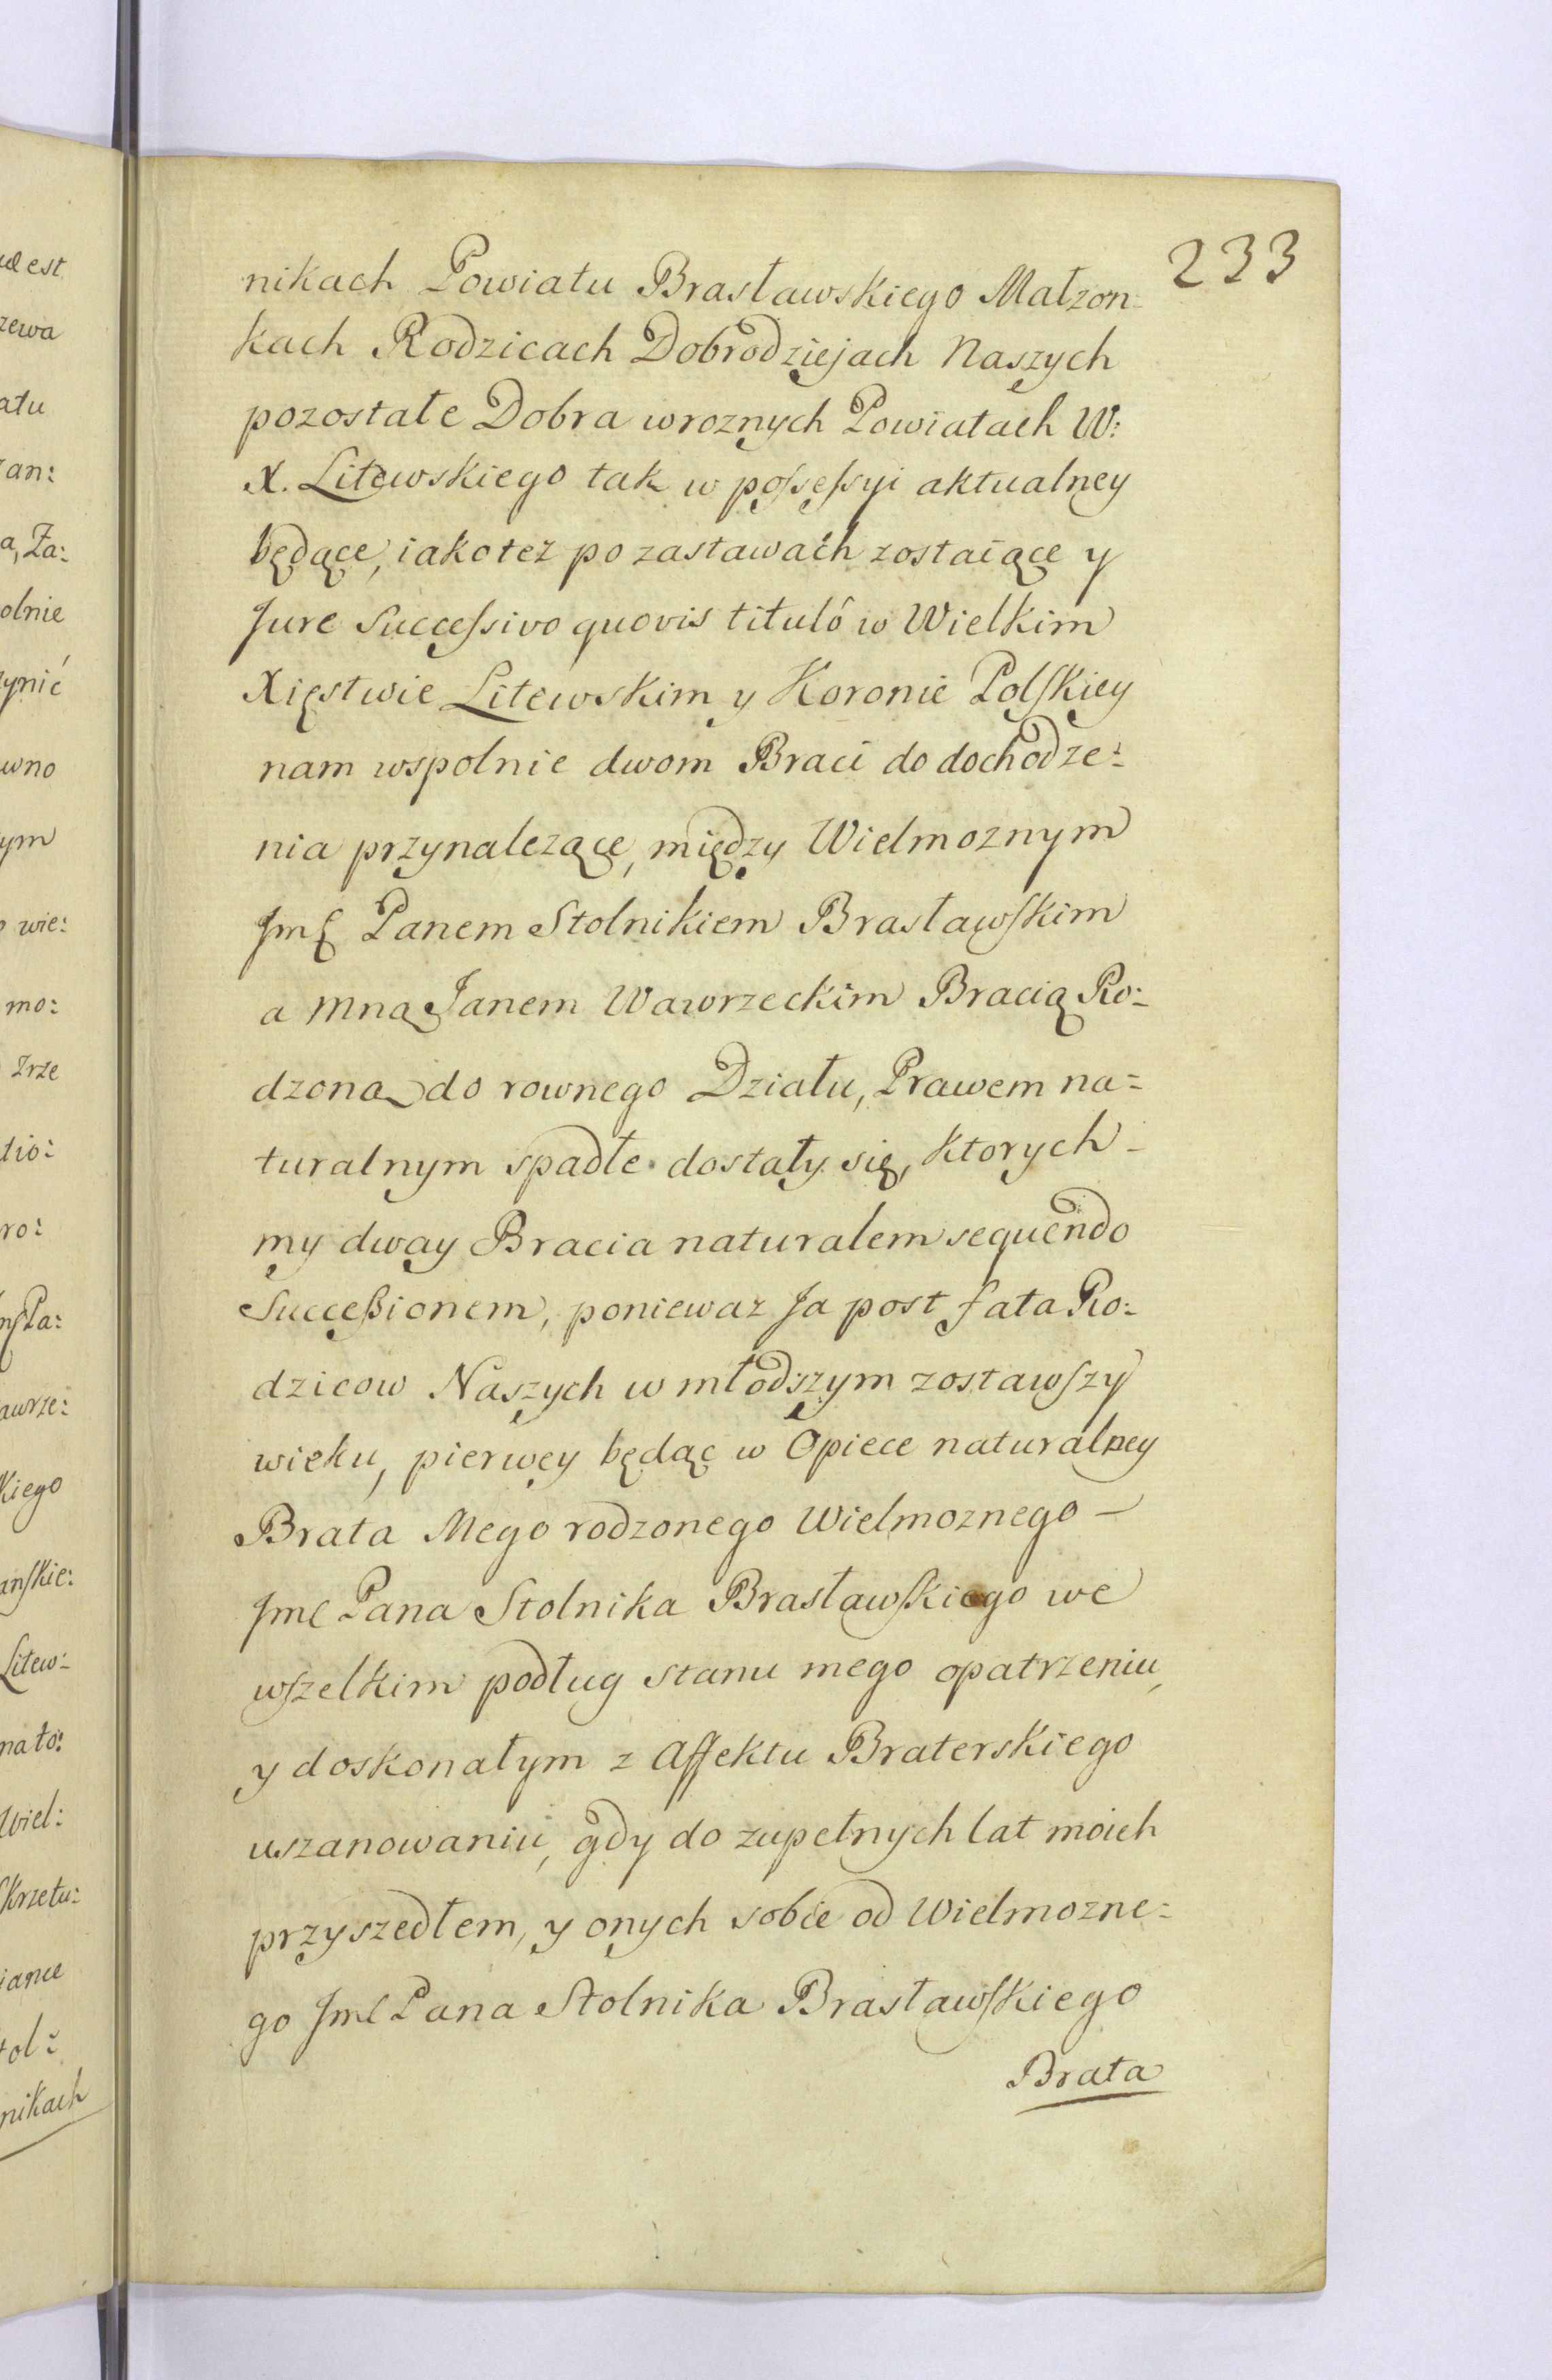 233
nikach Powiatu Brasławskiego Małzon-
kach Rodzicach Dobrodziejach Naszych
pozostałe Dobra wroznych Powiatach W:
X. Litewskiego tak w possessyi aktualney
będące, iako tez po zastawach zostaiące y
Jure Successivo quovis titulô w Wielkim
Xięstwie Litewskim y Koronie Polskiey
nam wspolnie dwom Braci do dochodze:
nia przynalezące, między Wielmoznym
Jmć Panem Stolnikiem Brasławskim
a Mną Janem Wawrzeckim Bracią Ro:
dzoną do rownego Działu, Prawem na=
turalnym spadłe dostały się, ktorych-
my dway Bracia naturalem sequendo
Successionem, poniewaz Ja post fata Ro:
dzicow Naszych w młodszym zostawszy
wieku, pierwey będąc w Opiece naturalney
Brata Mego rodzonego Wielmoznego —
Jmć Pana Stolnika Brasławskiego we
wszelkim podług stanu mego opatrzeniu,
y doskonałym z Affektu Braterskiego
uszanowaniu, gdy do zupełnych lat moich
przyszedłem, y onych sobie od Wielmozne:
go Jmć Pana Stolnika Brasławskiego
Brata
zewa
atu
an:
a, Za:
olnie
ynić
wno
ym
wie:
mo:
Zrze
ro:
awrze:
kiego
anskie:
Litew:
nato:
Wiel:
Skrzetu:
tol:
nikach